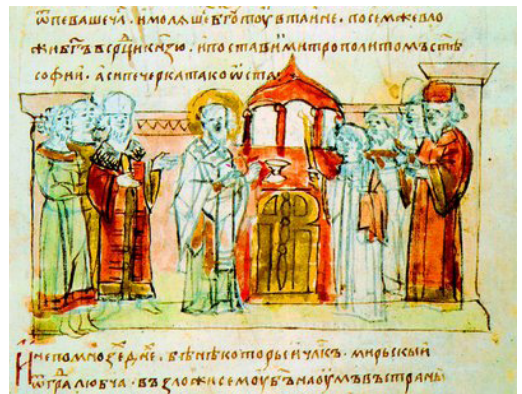 ѿпеваше ча҃. и молѧше бг҃а тоу втаине. посем же вло
жи бг҃ъ в срд҃ци кн҃ѕю. и постави митрополитомъ в ст҃ѣ
софии. а си печерка тако ѡста.
И не по мноѕѣ д҃не. бѣ нѣкоторыи чл҃къ. мирьскыи
ѿ гра любча. възложи семоу бъ на оумъ въ страны